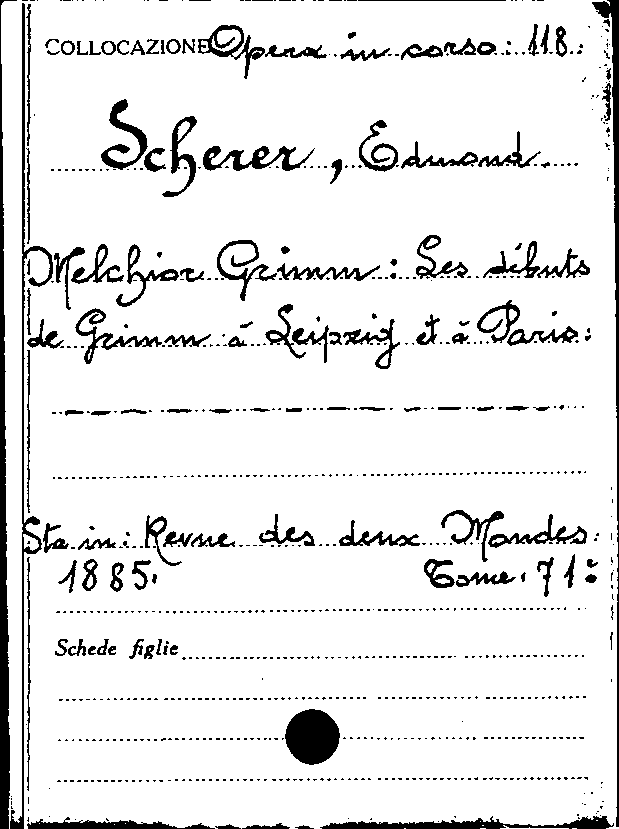 COLLOCAZIONE Opera in corso: 118.
Scherer, Edmond.
Melchior Grimm: Les débuts
de Grimm à Leipzig et à Paris:
Sta in: Revue des deux Mondes.
1885. Tome. 71º
Schede figlie